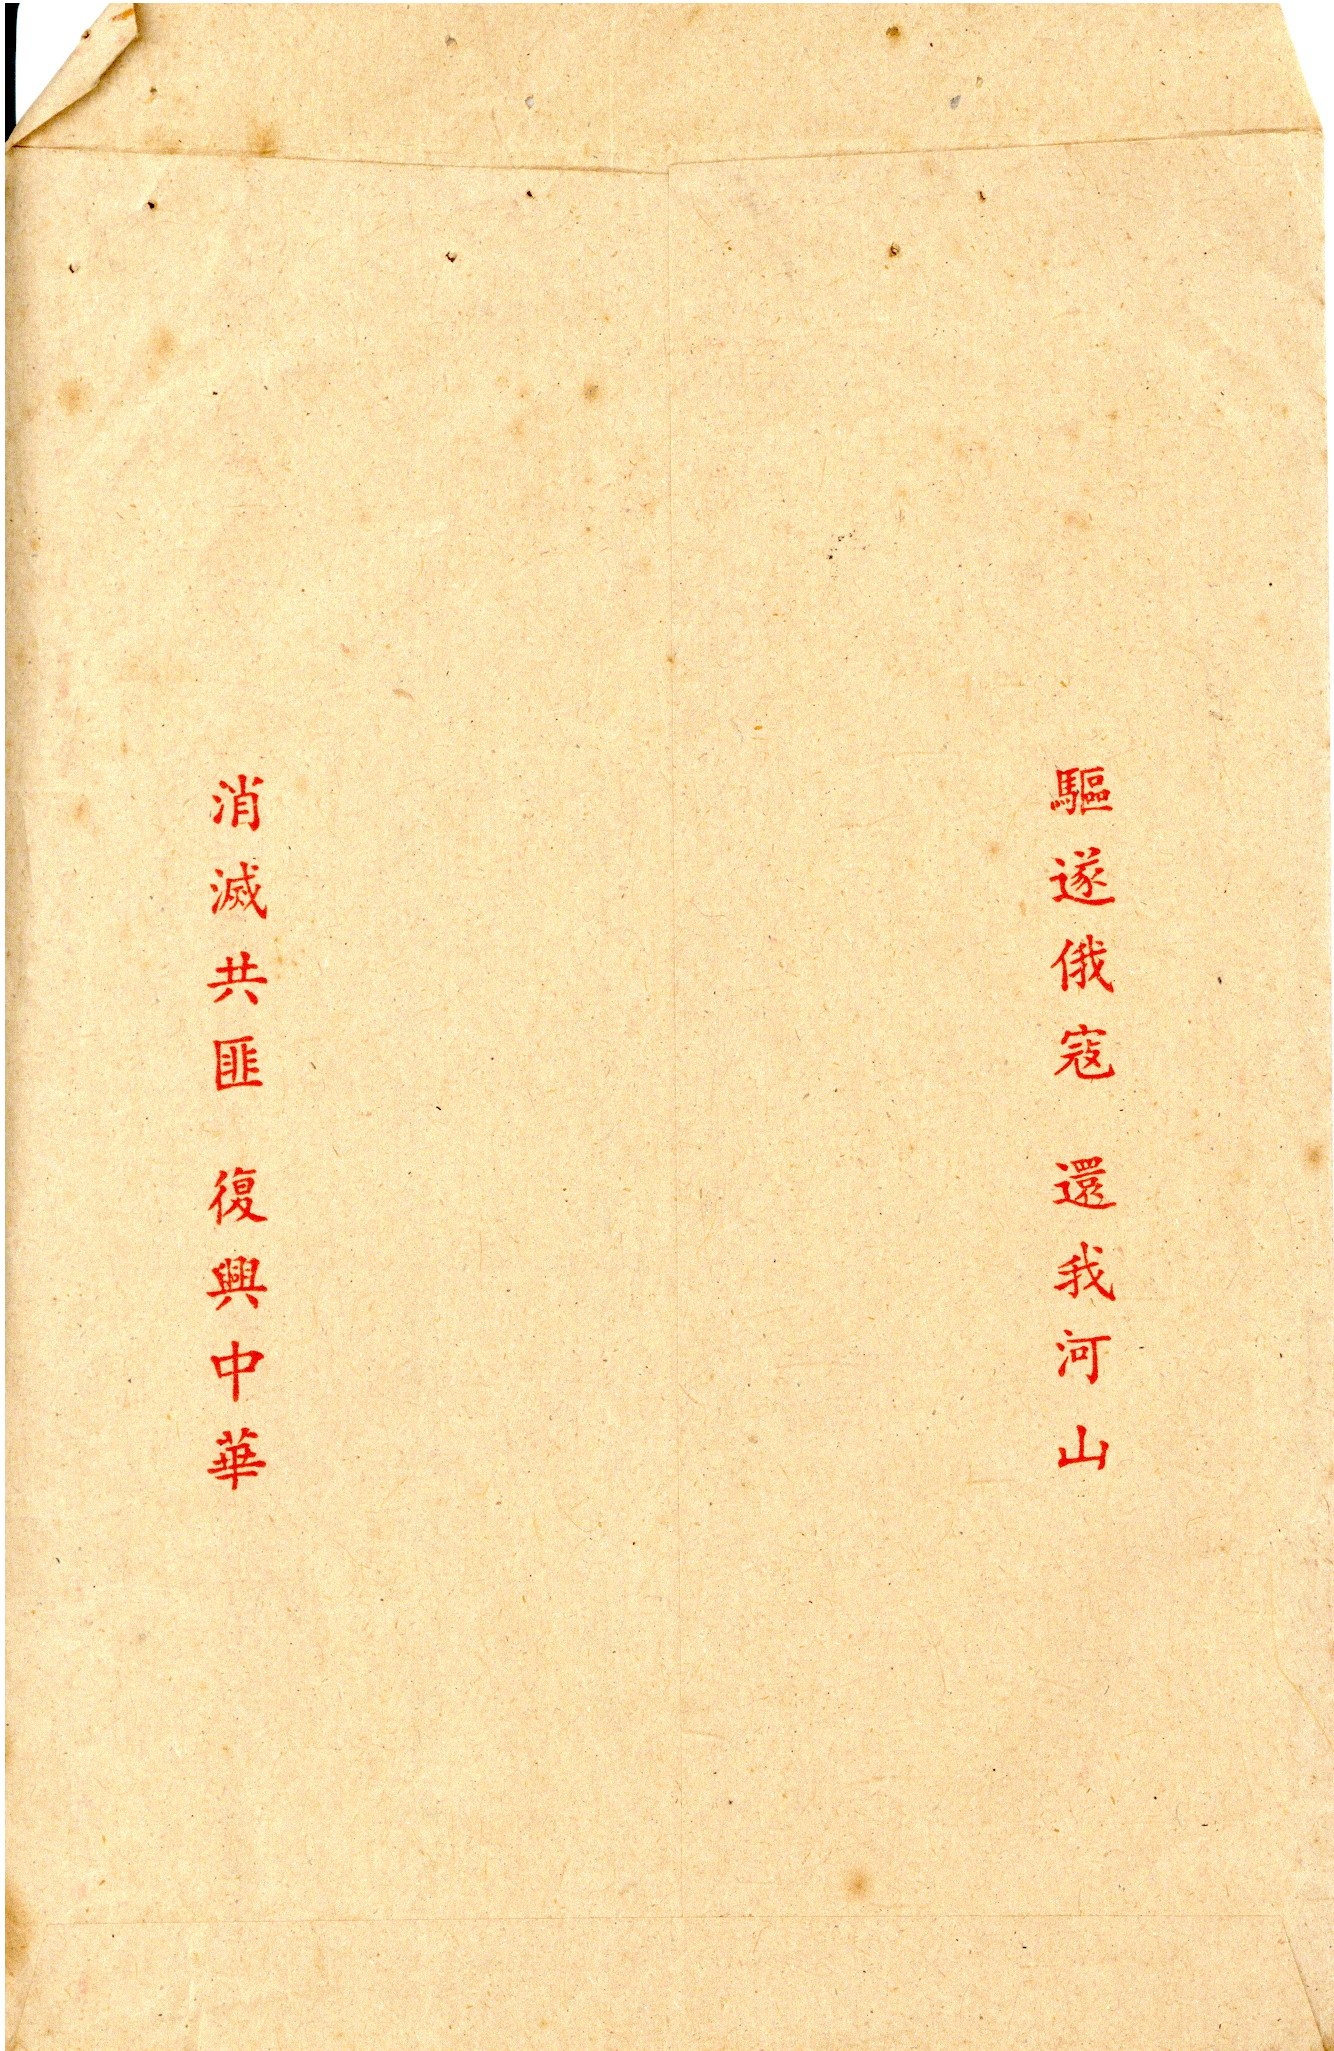 驅遂俄寇 還我河山
消滅共匪 復興中華